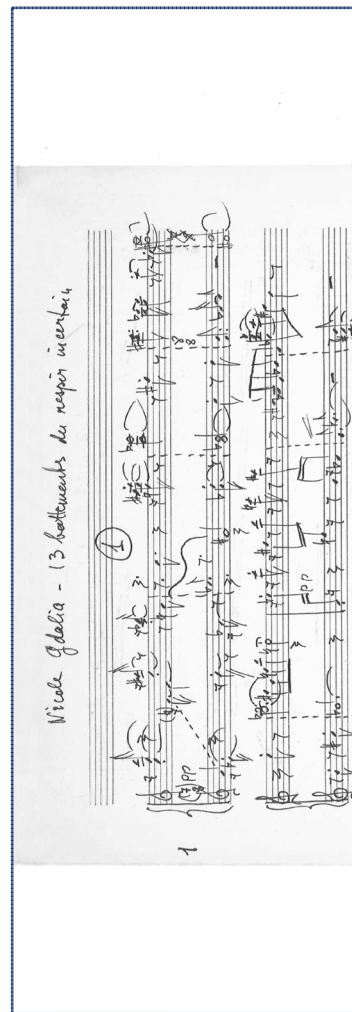 Nicole Gdalia - 13 battements du respir incertain
1
1
pp
pp